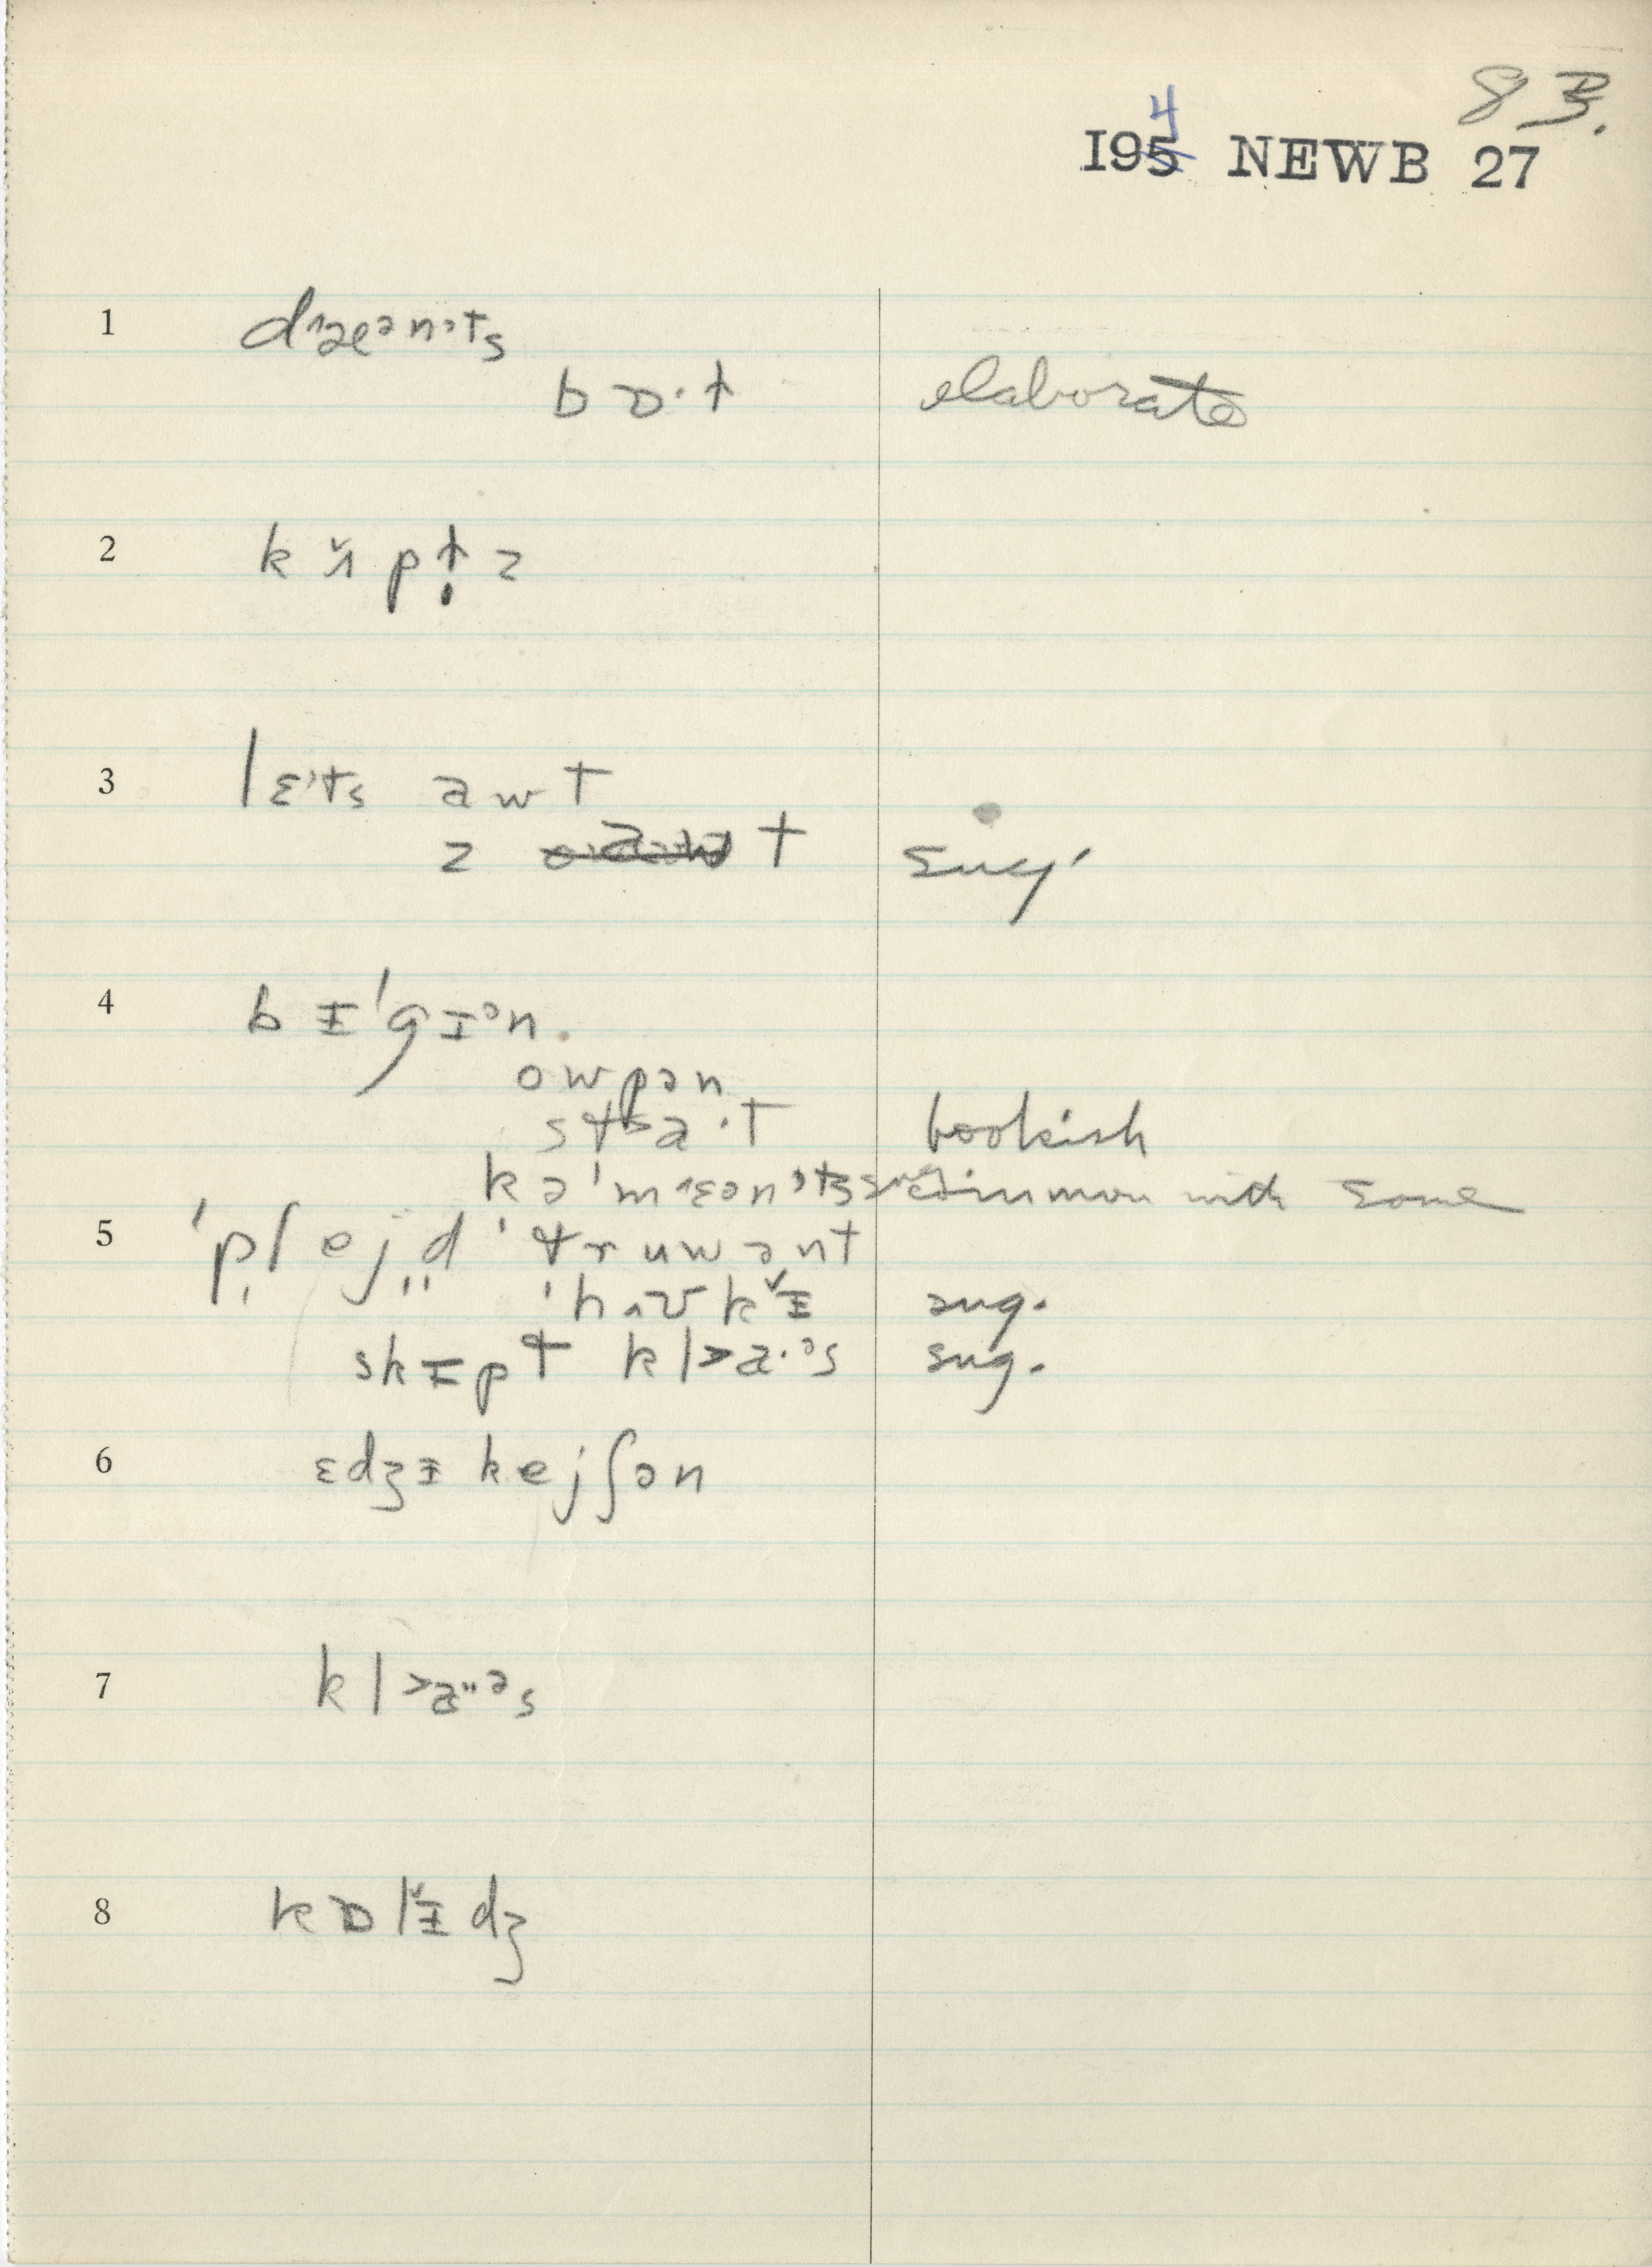 83.
4
195 NEWB 27
1 d˄æᵊnᵗts
bɒ·t elaborate
2 k ɪ̌ p t̬ z
3 lɛᵗts awt
z t sug.
4 b ɪ ˈg ɪᵊn.
owpən
stɑ·t bookish
kəˈm˄ɛənᵗts common with some
5 ˈplejd ˈtruwənt
ˈh˄ʊkɪ̌ sug.
skɪpt kl>a·ᵊs sug.
6 ɛdʒɪkejʃən
7 kl>a··ᵊs
8 kɒlɪ̌dʒ